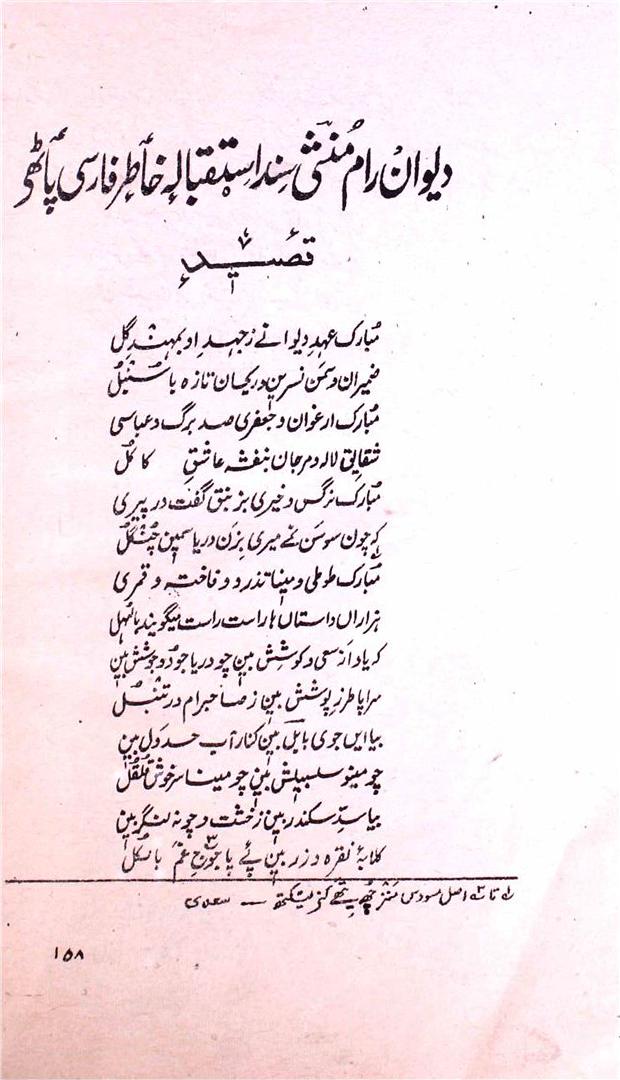 دیوان رام مُنشی سٕند استقبالہٕ خٲطرٕ فارسی پٲٹھۍ
قصیدٕ
مُبارک عہدِ دیوانے زجہدِ او بمہند گُل
ضمیران و سمن نسرین و ریحان تازہ با سُنبُل
مُبارک ارغوان و جعفری صد برگ و عباسی
شقایق لالہ و مرجان بنفشہ عاشقِ کاکُل
مُبارک نرگس و خیری بزنبق گفت در پیری
کہ چون سوسن نمے میری بزن دریا سمین چُنگُل
مُبارک طوطی و مینا تذرد و فاختہ و قمری
ہزاراں داستاں ہا راست راست میگویند با
کہ یاد از سعی و کوشش بین چو دریا جود و جوشش بین
سراپا طرزِ پوشش بین ز صاحبرام در تُنبُل
بیا ایں جوی بابل بین کنارِ آب جدول بین
چو مینو سلسبیلش بین چو مینا سرخوش قُلقُل
بیا سدِّ سکندر بین زخشت و چونہ لنگر بین
کلابۂ نقرہ و زر بین پئے یاجوجِ غم باکُل
اصل مسودس منز چھُ
۱۵۸